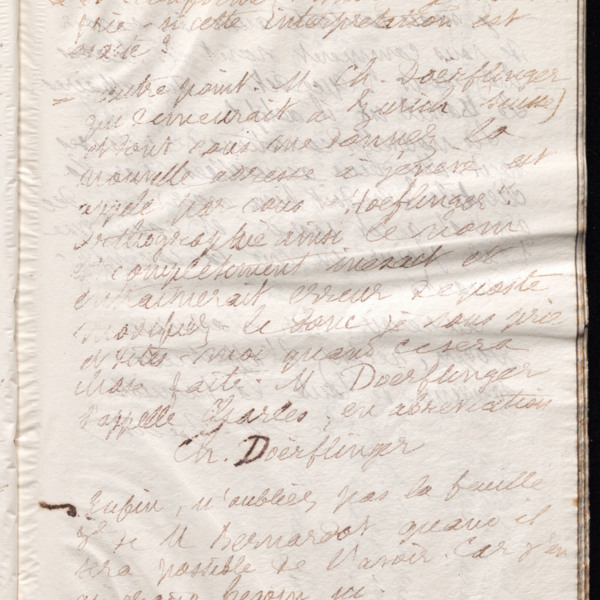 prie si cette interprétation est
exacte?
= autre point. M. Ch. Doerflinger
qui demeurait à Zurich (Suisse)
et dont vous me donnez la
nouvelle adresse à Genève est
appelé par vous "Hoeflinger".
Orthographié ainsi le nom
est complètement inexact et
entraînerait erreur de poste
modifiez le donc je vous prie
et dites-moi quand ce sera
chose faite. M Doerflinger
s'appelle Charles, en abréviation
Ch. Doërflinger
Enfin, n'oubliez pas la feuille
de M Bernardot quand il
sera possible de l'avoir. Car j'en
besoin ici.